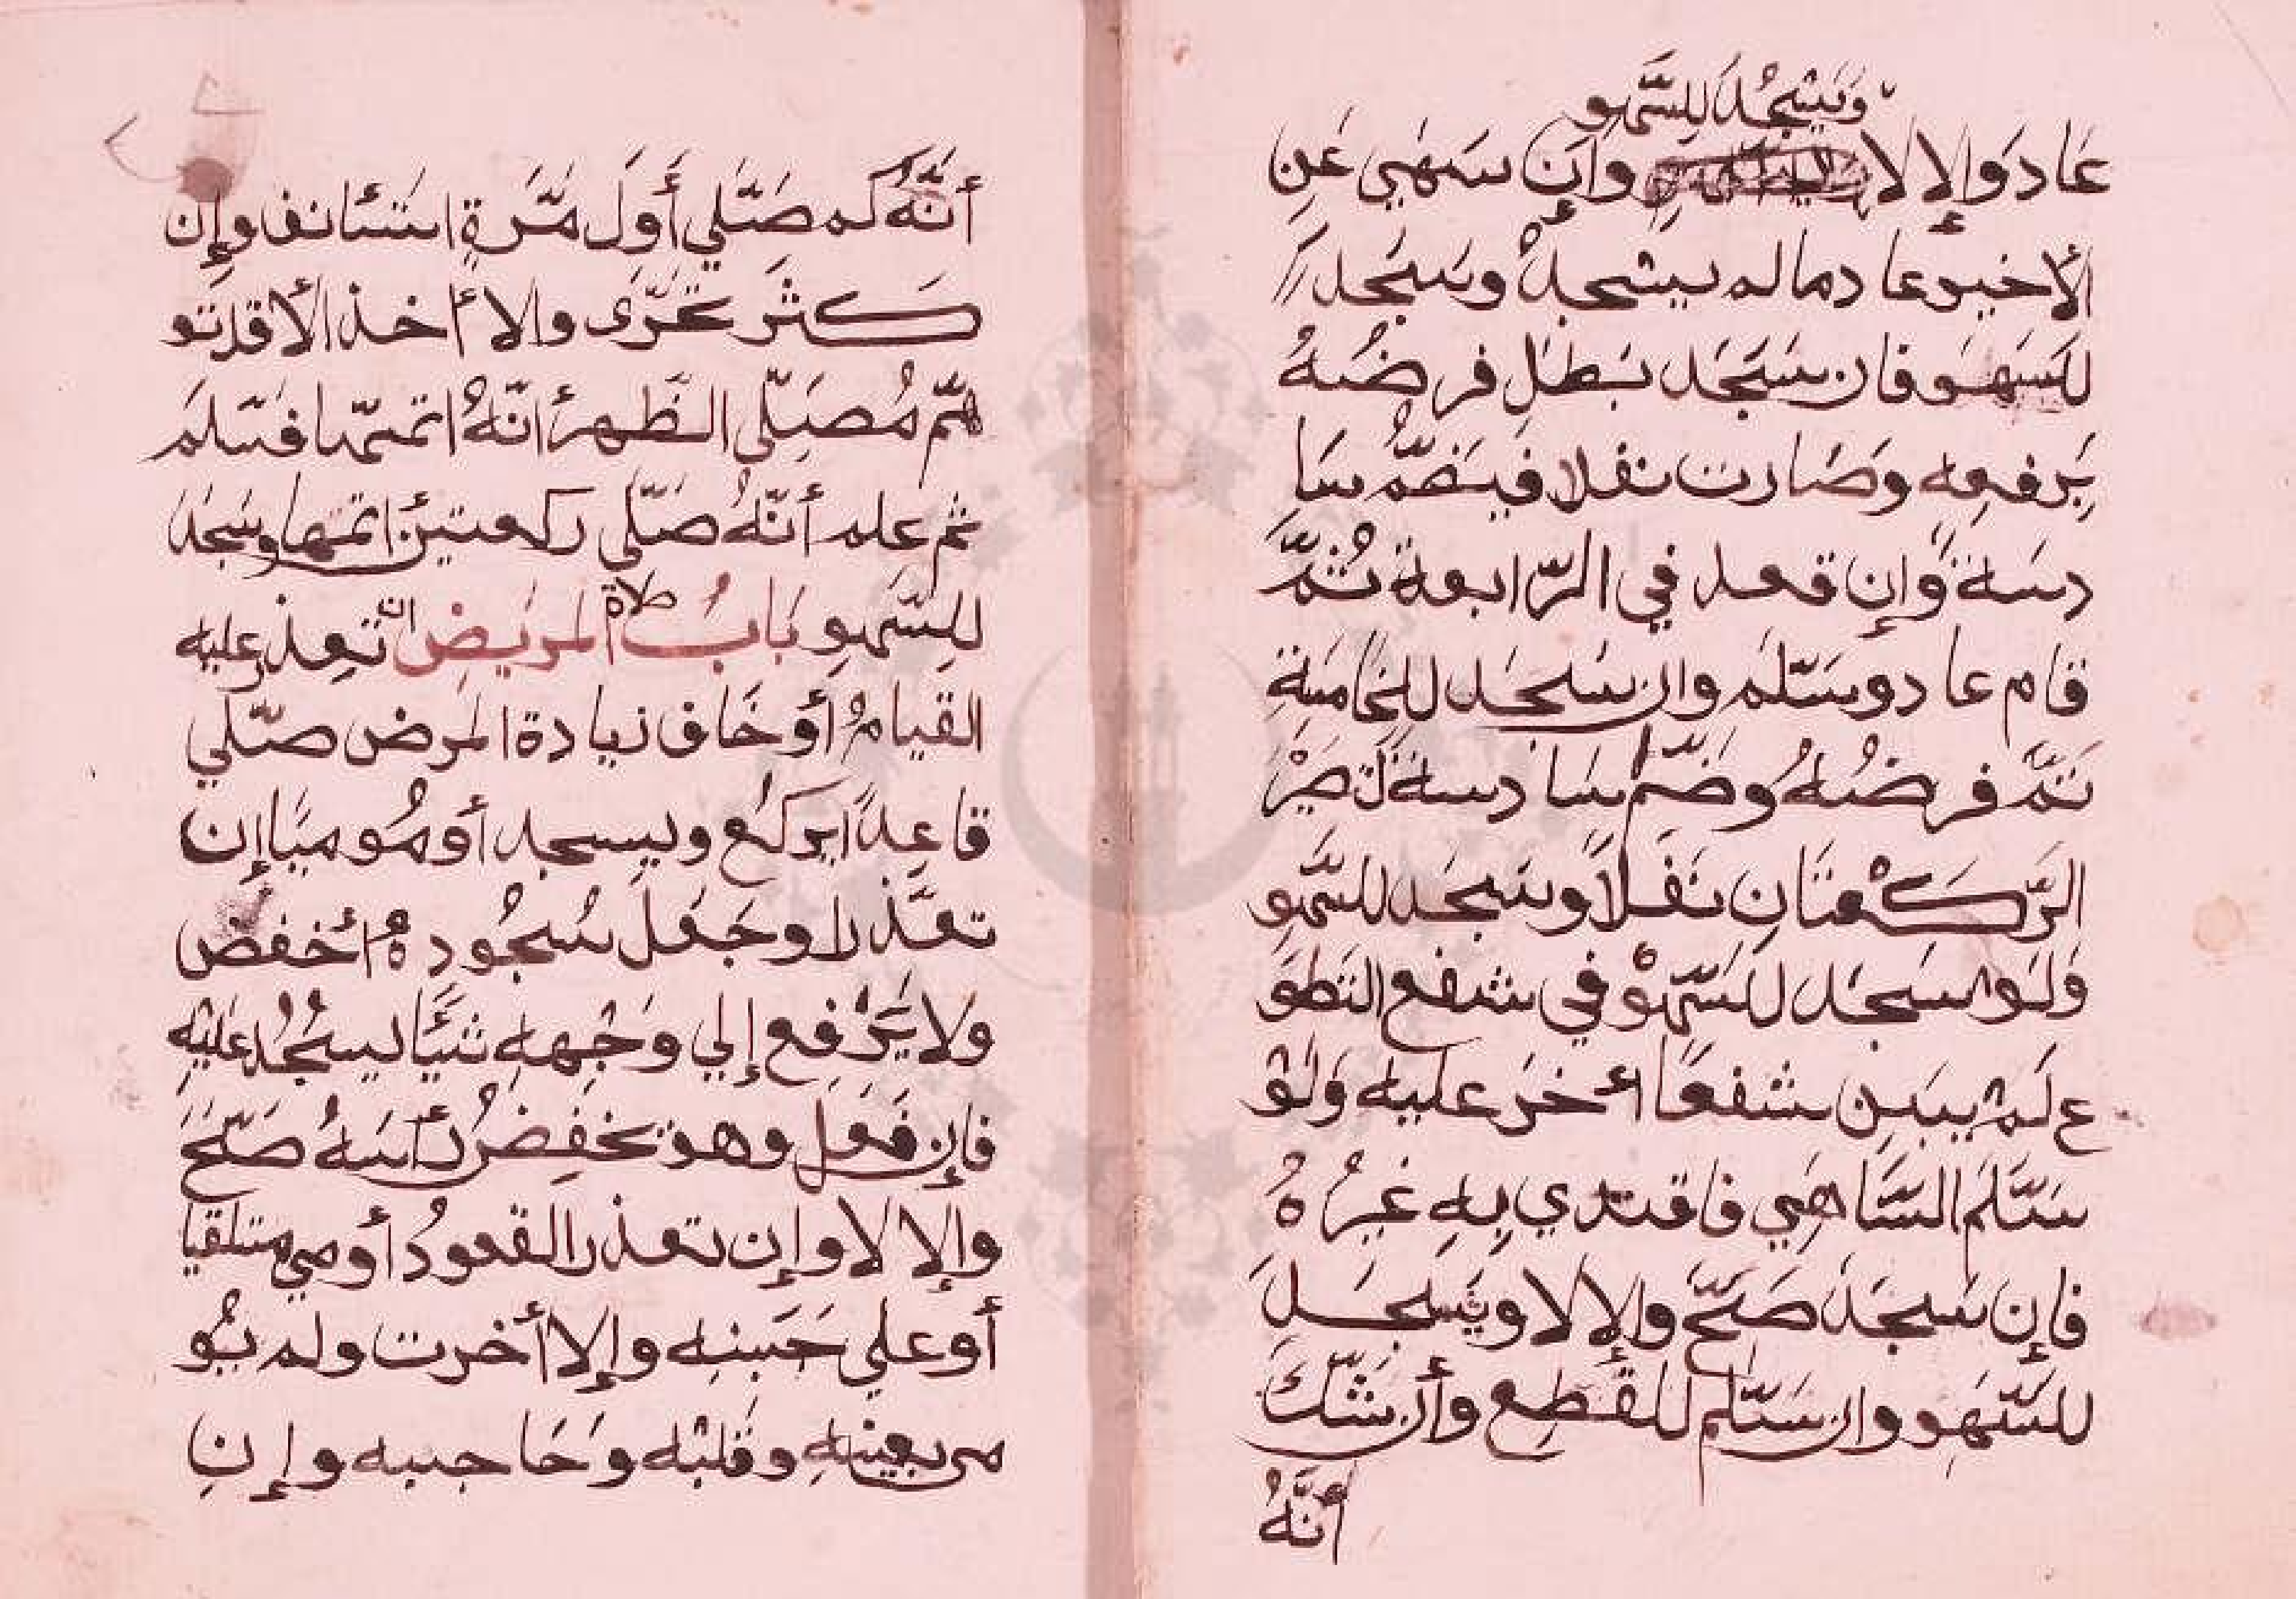 ويسجد للسهو
عاد وإلا لا وإن سهى عن
الأخير عاد ما لم يسجد وسجد
للسهو فان سجد بطل فرضه
برفعه وصارت نفلا فيضم سا
دسة وإن قعد في الرابعة ثم
قام عاد وسلم وان سجد للخامسة
تم فرضه وضم سادسة لتصير
الركعتان نفلا وسجد للسهو
ولو سجد للسهو في شفع التطو
ع لم يبن شفعا أخر عليه ولو
سلم الساهي فاقتدي به غيره
فإن سجد صح وإلا لا ويسجد
للسهو وان سلم للقطع وأن شك
أنه
أنه كم صلي أول مرة استئانف وإن
كثر تحرى والا أخذ الأقل تو
هم مصلى الظهر أنه اتمها فسلم
ثم علم أنه صلى ركعتين اتمها وسجد
للسهو باب صلاة المريض ان تعذر عليه
القيام أو خاف زيادة المرض صلي
قاعدا يركع ويسجد أو موميا إن
تعذرا وجعل سجوده أخفض
ولا يرفع إلي وجهه شيئا يسجد عليه
فإن فعل وهو يخفض رأسه صح
والا لا وإن تعذر القعود أومي مستلقيا
أو علي جنبه وإلا أخرت ولم يو
م بعينه وقلبه وحاجبه وإن